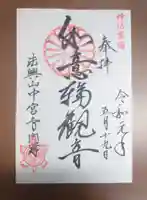 奉拝
令和元年
五月十九日
如意輪觀音
法興山中宮寺門跡